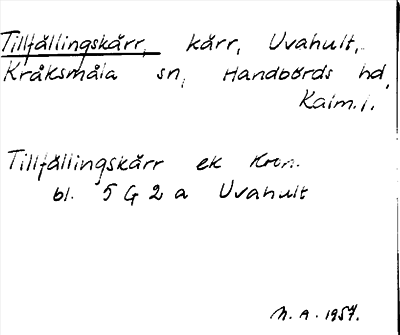 Tillfällingskärr, kärr, Uvahult,
Kråksmåla sn, Handbörds hd,
Kalm.l.
Tillfällingskärr ek kron.
bl. 5 G 2 a Uvahult
N. A. 1957.